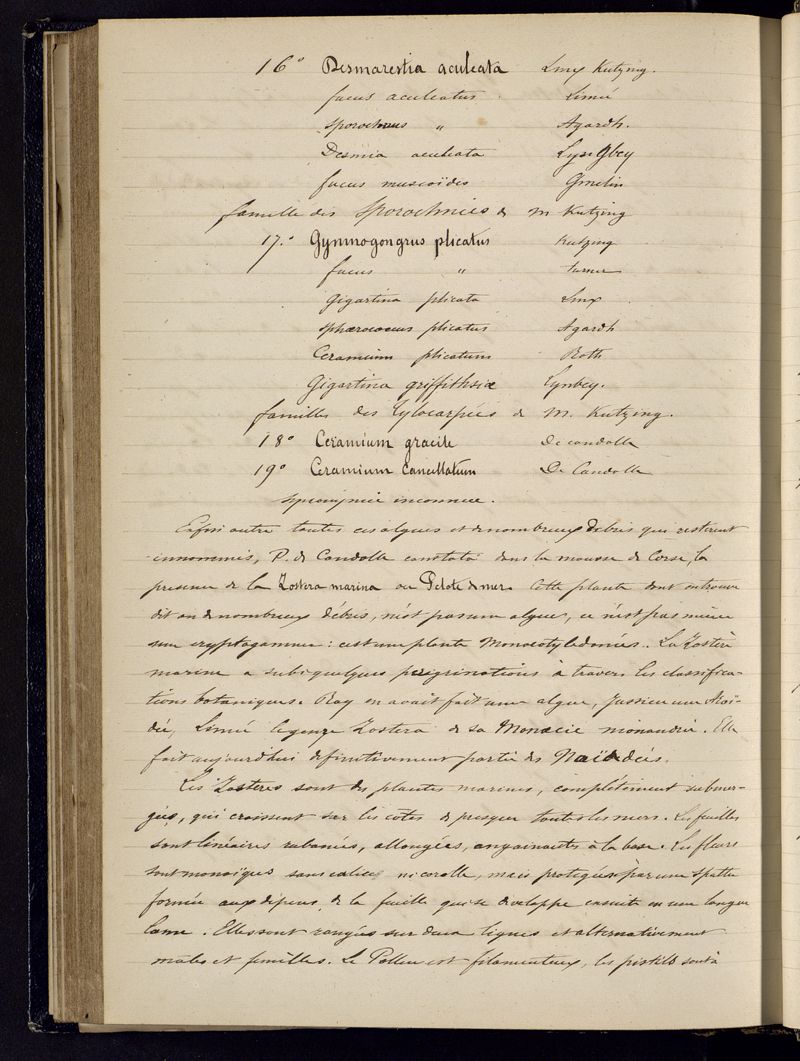 16° Desmarestia aculeata Lmx Kutzing.
fucus aculeatus Linné
Sporochnus " Agardh.
Desmia aculeata Lyngbey
fucus muscoïdes Gmelin
famille des Sporochnées de M Kutzing
17.° Gymnogongrus plicatus Kutzing
fucus " turner
Gigartina plicata Lmx
Sphærococcus plicatus Agardh
Ceramium plicatum Roth
Gigartina griffithsiæ Lynbey.
familles des Tylocarpées de M. Kutzing.
18° Ceramium gracile De candolle
19° Ceramium Cancellatum De Candolle
Synonymie inconnue.
Enfin outre toutes ces algues et de nombreux debris qui restèrent
innommés, P. de Candolle constata dans la mousse de Corse, la
presence de la Zostera marina ou Pelote de mer. Cette plante dont on trouve
dit on de nombreux débris, n'est pas une algue, ce n'est pas même
une cryptogamme : c'est une plante Monocotyledonée. La Zostère
marine a subi quelques peregrinations à travers les classifica-
tions botaniques. Ray en avait fait une algue, Jussieu une Aroï-
dée, Linné le genre Zostera de sa Monœcie monandrie. Elle
fait aujourd'hui definitivement partie des Naïadées.
Les Zosteres sont des plantes marines, complétement submer-
gées, qui croissent sur les côtes de presque toutes les mers. Les feuilles
sont linéaires rubanées, allongées, engainantes à la base. Les fleurs
sont monoïques sans calice ni corolle, mais protegées par une spathe
formée aux dépens de la feuille qui se developpe ensuite en une longue
lame. Elles sont rangées sur deux lignes et alternativement
mâles et femelles. Le Pollen est filamenteux, les pistils sont à